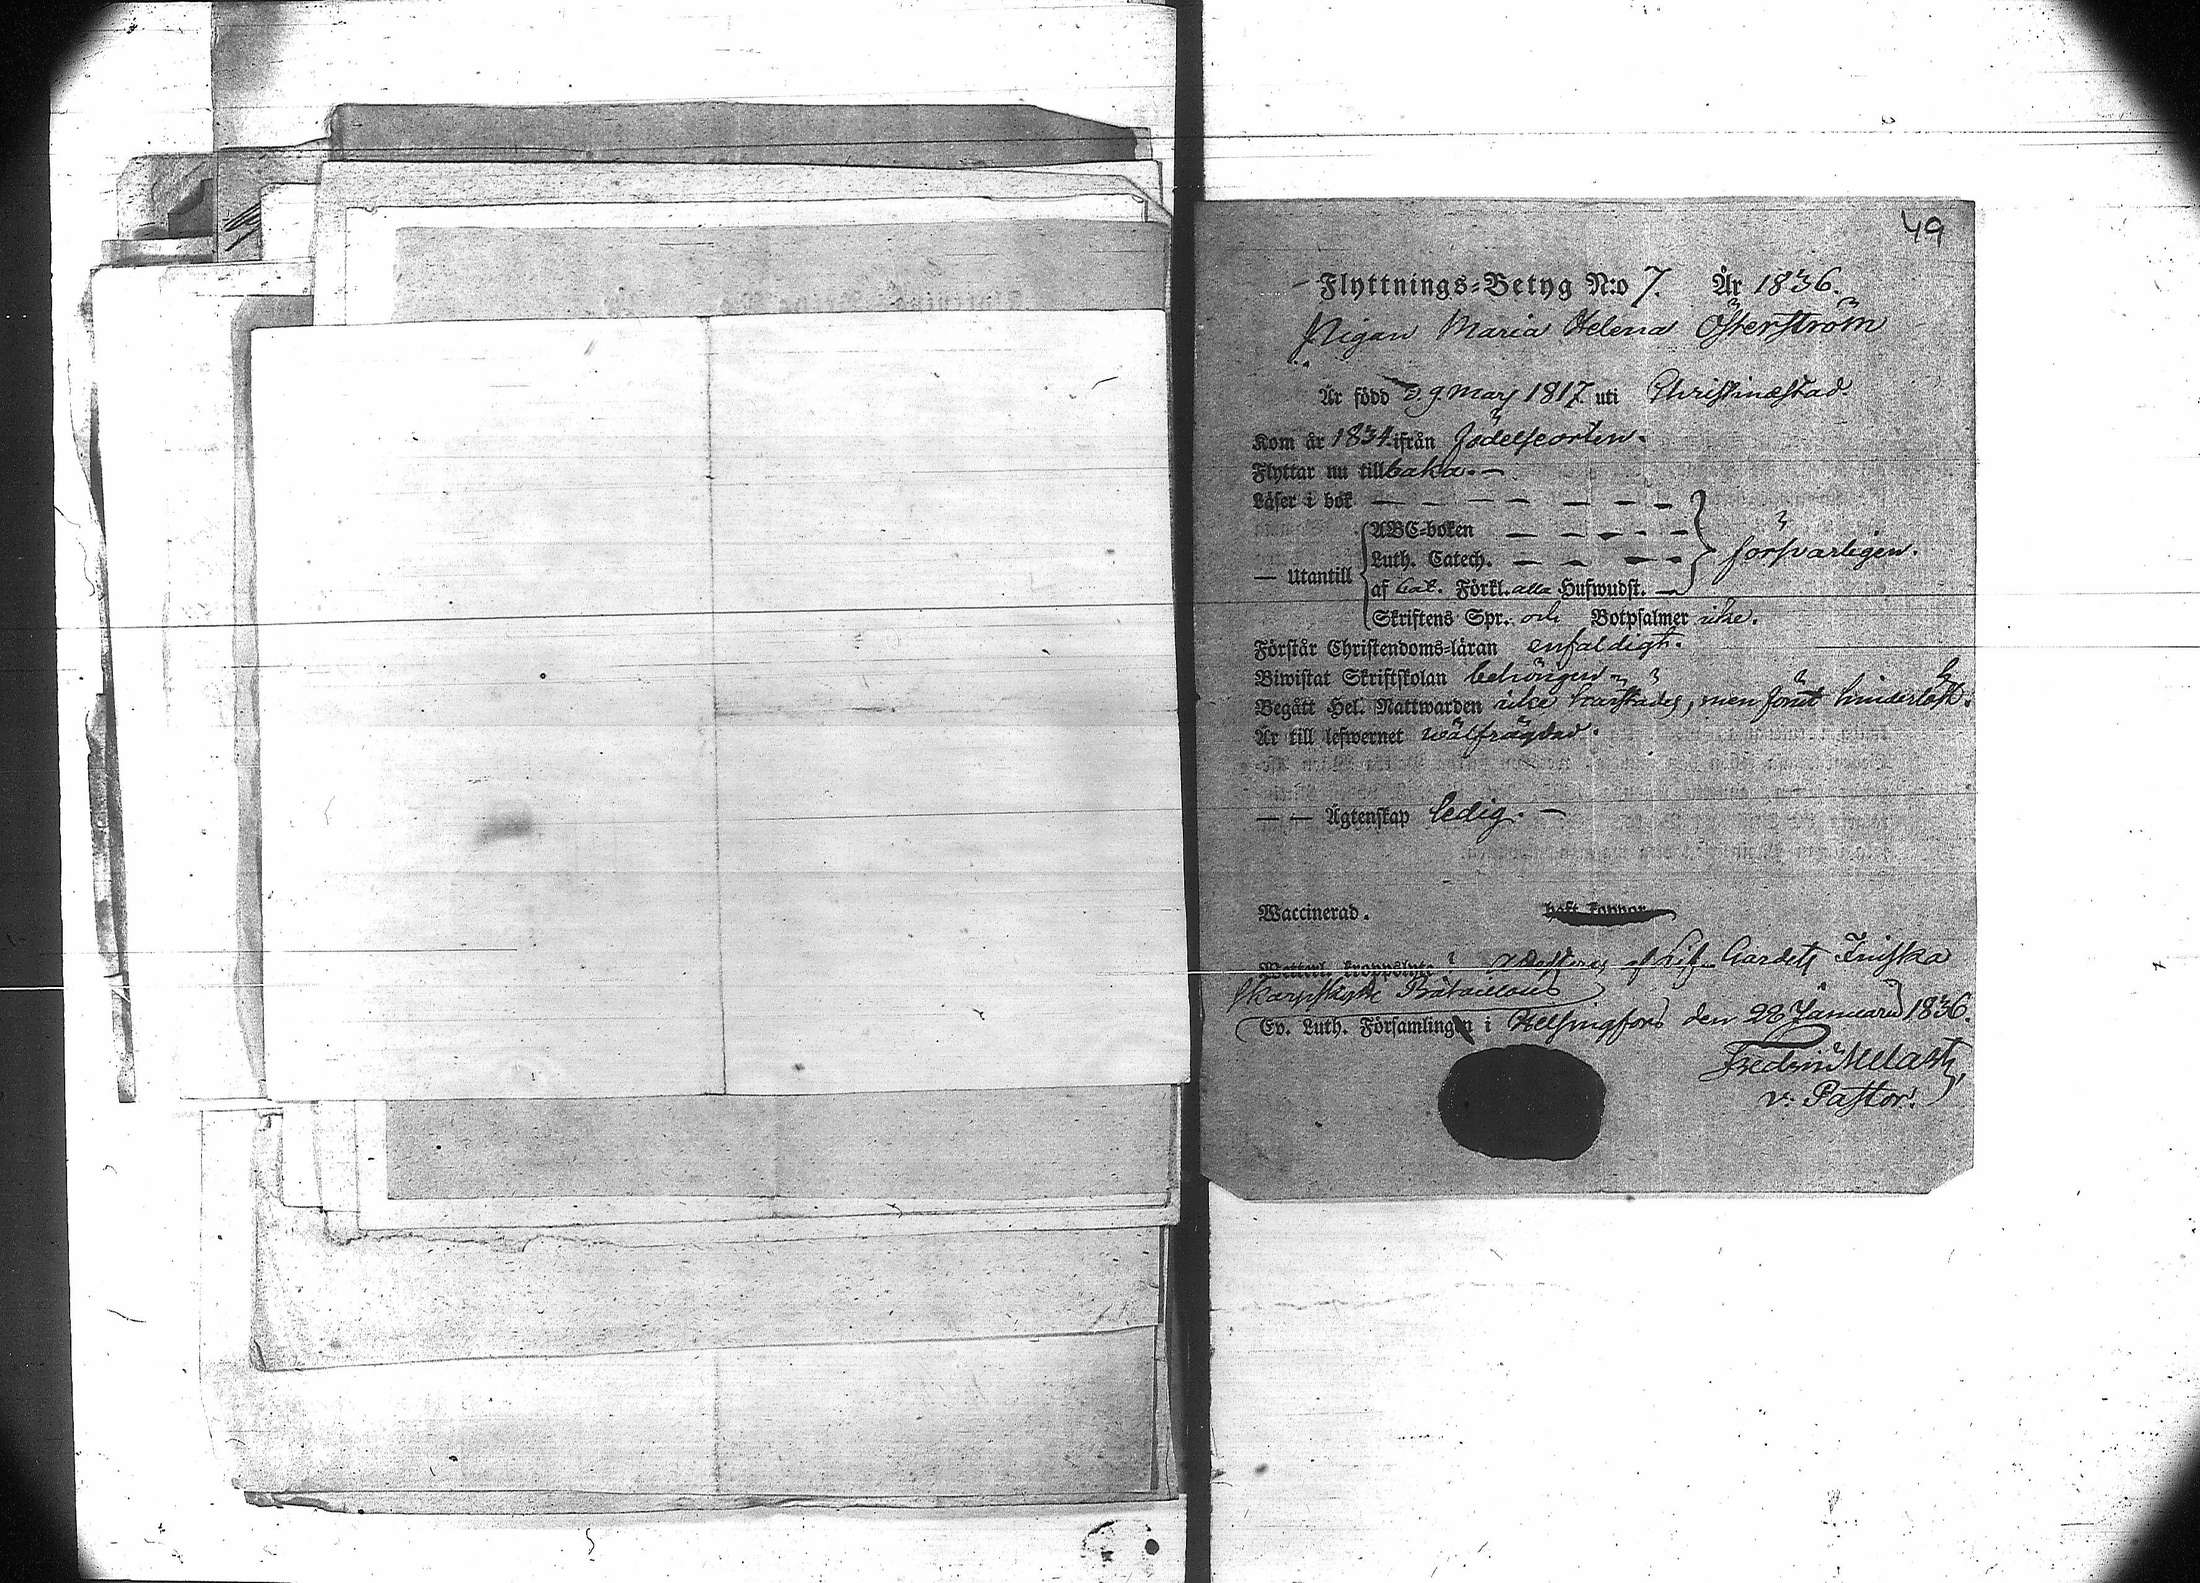 49
Flyttnings-Betyg N:o 7. År 1836.
Pigan Maria Helena Österström
Är född d. 9 Mars 1817 uti Christinæstad.
Kom år 1834 ifrån födelseorten.
Flyttar nu tillbaka. —
Läser i bok — — — — — — —
ABC-boken — — — — — —
Luth. Catech. — — — — — försvarligen.
— utantill
af Cat. Förkl. alla Hufwudst. —
Skriftens Spr. och Botpsalmer icke.
Förstår Christendoms-läran enfaldigt.
Biwistat Skriftskolan behörigen
Begått Hel. Nattwarden icke härstädes, men förut hinderlöst.
Är till lefwernet wälfrägdad.
— — Ägtenskap ledig. —
Waccinerad. haft koppor
Wetterl. kroppslyte af Lif-Gardets Finska
Skarpskytte Bataillons
Ev. Luth. Församlingen i Helsingfors den 22 Januarii 1836.
v. Pastor.